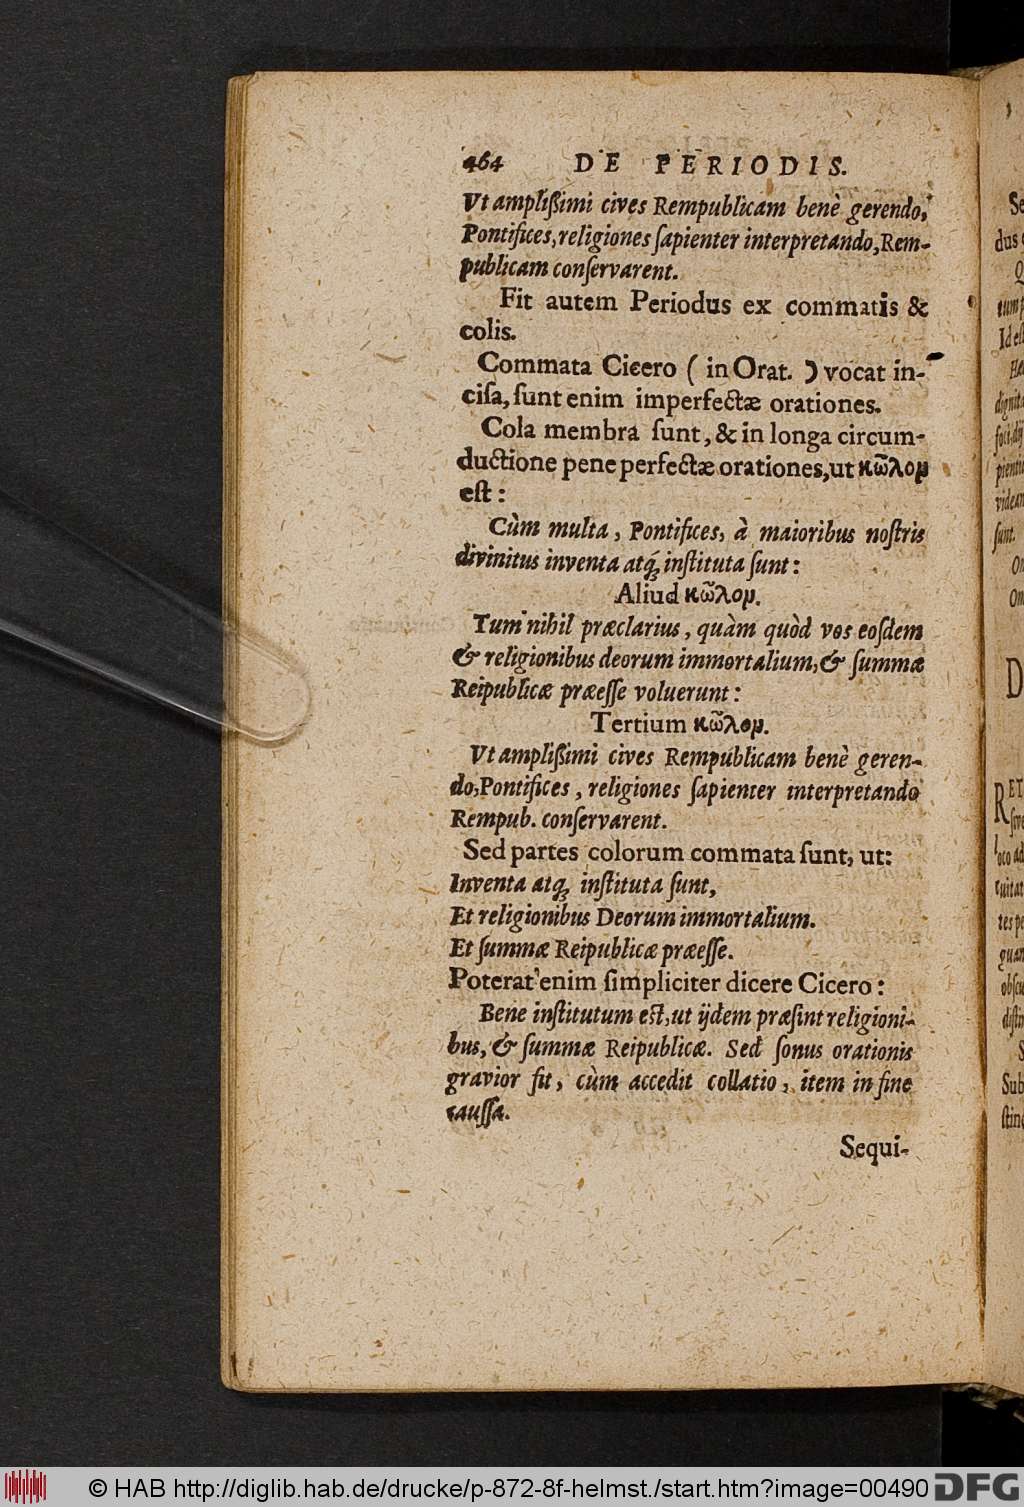 464 DE PERIODIS.
Ut ampliſſimi cives Rempublicam benè gerendo,
Pontifices, religiones ſapienter interpretando, Rem-
publicam conſervarent.
Fit autem Periodus ex commatis &
colis.
Commata Cicero ( in Orat. ) vocat in-
ciſa, ſunt enim imperfectæ orationes.
Cola membra ſunt, & in longa circum-
ductione pene perfectæ orationes, ut κῶλομ
eſt:
Cùm multa, Pontifices, à maioribus noſtris
divinitus inventa atq; inſtituta ſunt:
Aliud κῶλομ.
Tum nihil præclarius, quàm quòd vos eoſdem
& religionibus deorum immortalium, & ſummæ
Reipublicæ præeſſe voluerunt:
Tertium κῶλομ.
Ut ampliſſimi cives Rempublicam benè geren-
do, Pontifices, religiones ſapienter interpretando
Rempub. conſervarent.
Sed partes colorum commata ſunt, ut:
Inventa atq; inſtituta ſunt,
Et religionibus Deorum immortalium.
Et ſummæ Reipublicæ præeſſe.
Poterat enim ſimpliciter dicere Cicero:
Bene inſtitutum eſt, ut ijdem præſint religioni-
bus, & ſummæ Reipublicæ. Sed ſonus orationis
gravior fit, cùm accedit collatio, item in fine
cauſſa.
Sequi-
© HAB http://diglib.hab.de/drucke/p-872-8f-helmst./start.htm?image=00490 DFG